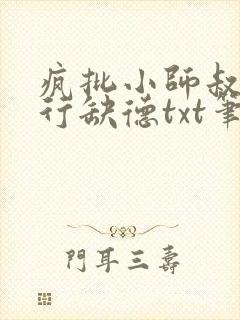 疯批小師叔
行缺德txt筆
門耳三壽